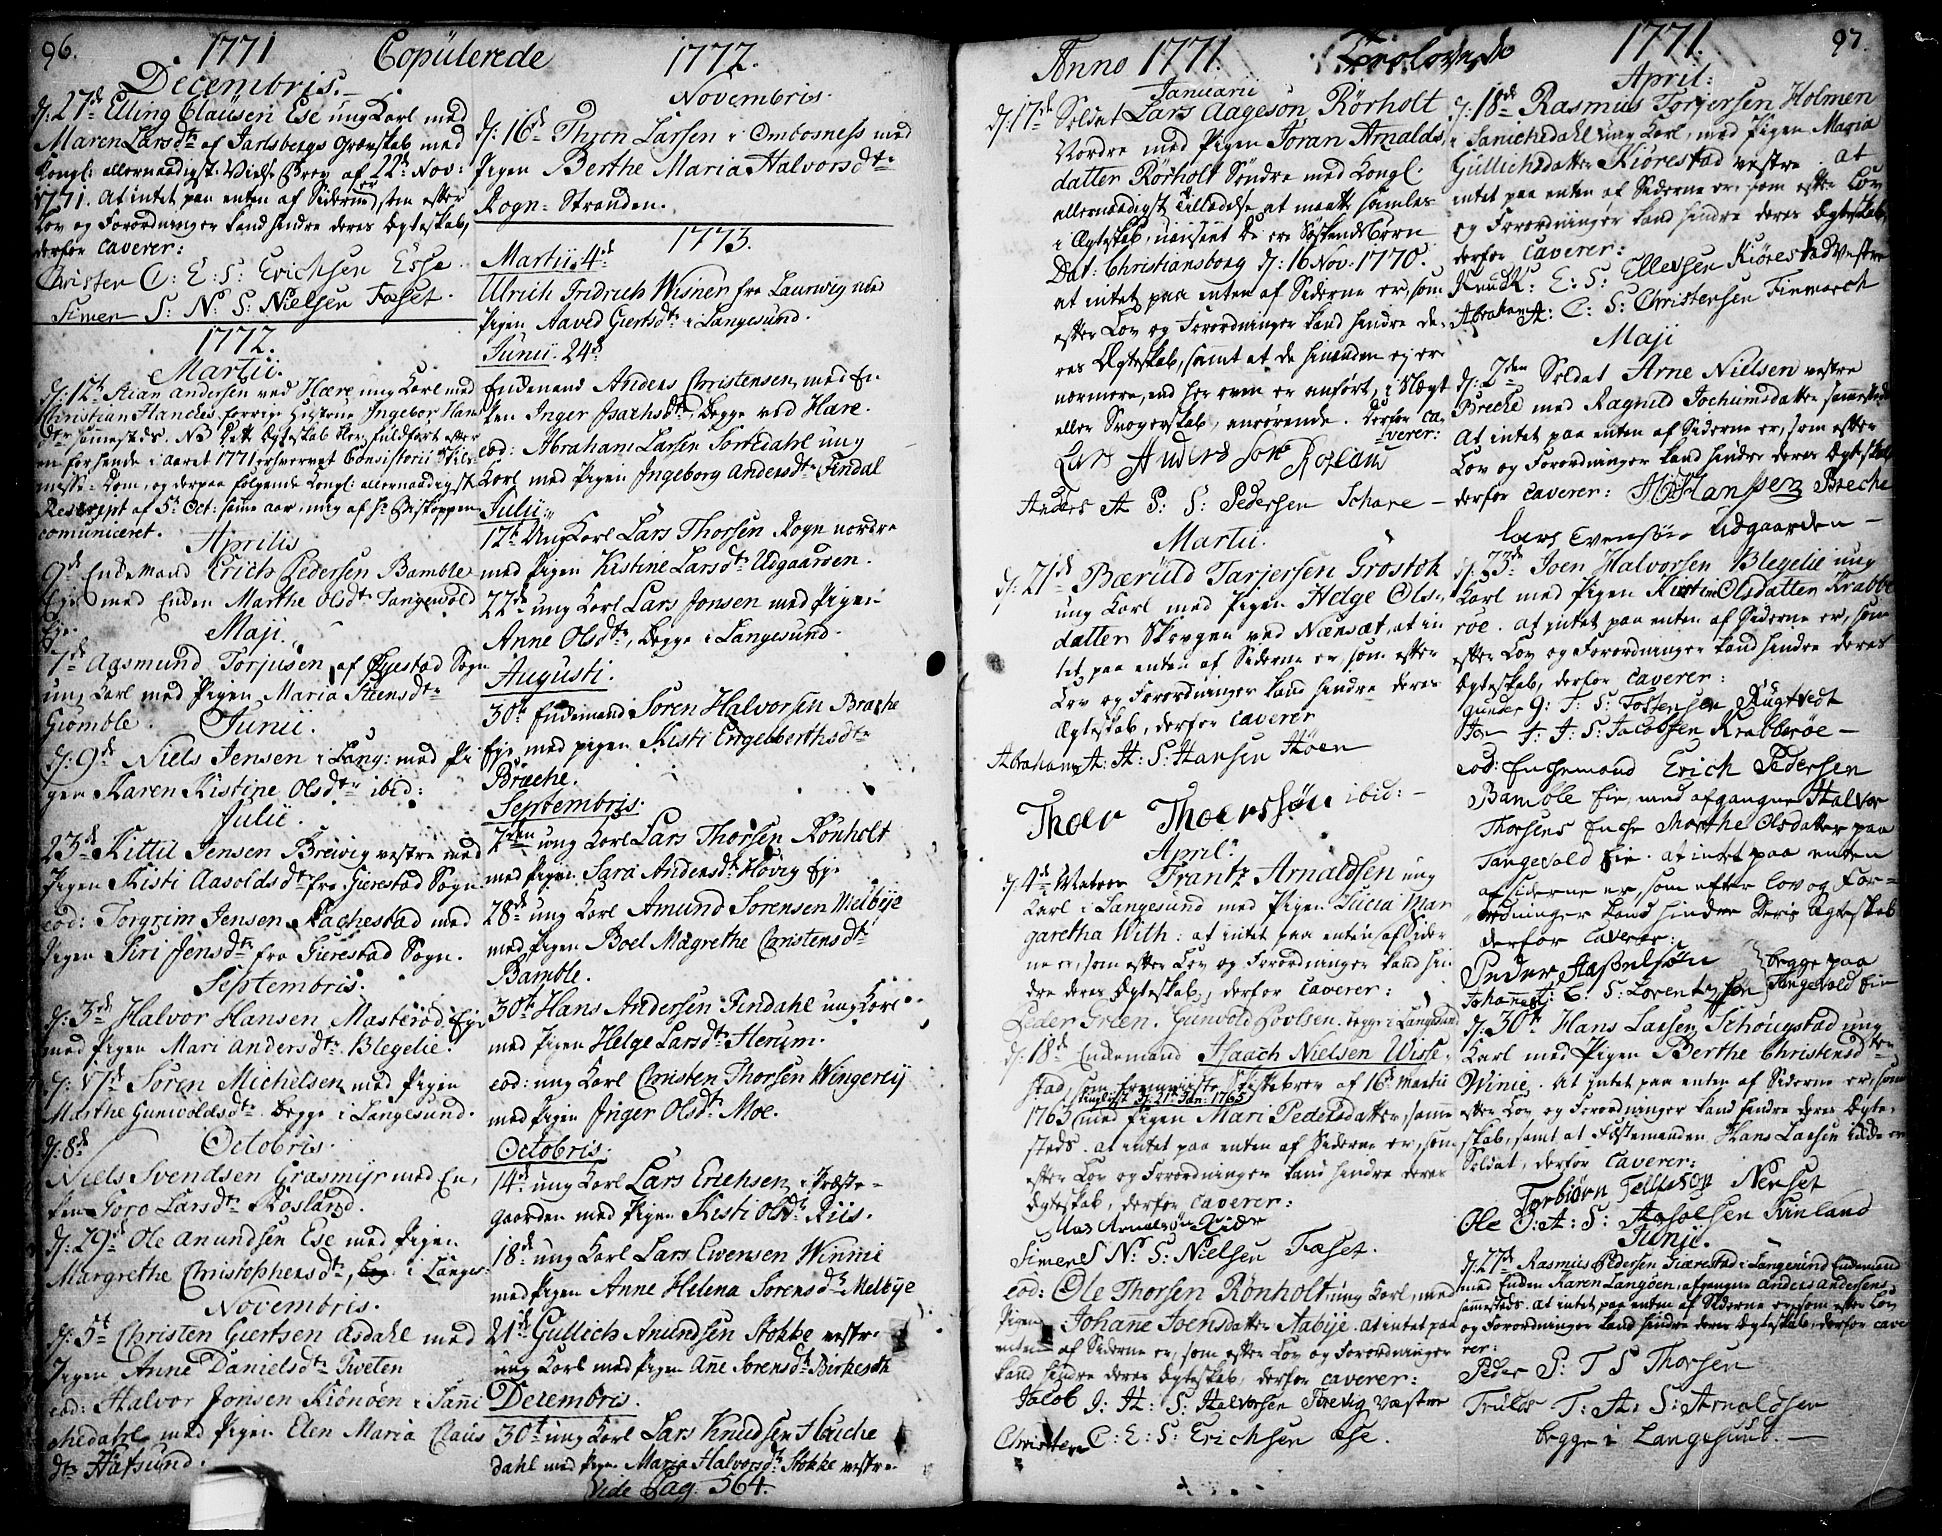 96.
1771 Copülerede
Decembris.
d: 27de Elling Claüsen Ese ung Karl med
Maren Larsdtr af Jarlsbergs Grævskab med
Kongl: allernaadigst Vielse Brev af 22de Nov:
1771. At intet paa enten af Siderne er, som efter
Lov og Forordninger kand hindre deres Ægteskab,
derfor caverer:
Christen C: E: S: Erichsen Esse.
Simen S: N: S: Nielsen Faset.
1772.
Martii.
d: 12te Andersen ved Hære ung Karl med
Christian Hanches forrige Hustrue Ingebor Hans
dtr samesteds. NB Dette Ægteskab blev fuldført efter
en forhende i aaret 1771 erhvervet Consistorii Skils
misse-Dom, og derpaa følgende Kongl: allernaadigst
Rescript af 5te Oct: samme aar, mig af Hr Biskoppen
comuniceret.
Aprilis
9de Enkemand Erich Pedersen Bamble
Eje med Enken Marthe Olsdtr Tangevold
Eje.
Maji.
7de Aasmund Torjusen af Gjerestad Sogn
ung Karl med Pigen Maria Steensdtr
Giømble.
Junii.
d: 9de Niels Jensen i Lang: med Pi
gen Karen Kistine Olsdtr ibid:
Julii.
23de Kittil Jensen Brewig vestre med
Pigen Kisti Aasoldsdtr fra Gierestad Sogn.
eod: Torgrim Jensen Rachestad med
Pigen Siri Jensdtr fra Gierestad Sogn.
Septembris.
d: 3de Halvor Hansen Masterød Eje
med Pigen Mari Andersdtr Blegelie.
d: 17de Søren Michelsen med Pigen
Marthe Gunwoldsdtr begge i Langesund.
d: 8de Octobris.
Niels Svendsen Grasmyr med En,
ken Toro Larsdtr Rosland.
d: 29de Ole Anundsen Ese med Pigen
Margrethe Christophersdtr i Langes:
Novembris.
d: 5te Christen Giertsen Asdahl med
Pigen Anne Danielsdtr Tveten
eod: Halvor Jonsen Kiønøen i Sann
chedahl med Pigen Elen Maria Claus
dtr Hafsund.
1772.
Novembris.
d: 16de Thron Larsen i Ombosness med
Pigen Berthe Maria Halvorsdtr
Rogn-Stranden.
1773.
Martii 4de
Ulrich Fridrich Wisner fra Laurwig med
Pigen Aaved Giertsdtr i Langesund.
Junii. 24de
Enkemand Anders Christensen med En-
ken Inger Isachsdtr, begge ved Hare.
eod: Abraham Larsen Tortedahl ung
Karl med Pigen Ingeborg Andersdtr Findal
Julii
17de Ung Karl Lars Thorsen Rogn nordre
med Pigen Kistine Larsdtr Udgaarden.
22de ung Karl Lars Jonsen med Pigen
Anne Olsdtr, begge i Langesund.
Augusti.
30te Enkemand Søren Halvorsen Brache
Eje med pigen Kisti Engelberthsdtr
Bræche.
Septembris.
2den ung Karl Lars Thorsen Rönholt
med Pigen Sara Andersdtr Høvig Eje
28de ung Karl Amund Sorensen Melbye
med Pigen Boel Magrethe Christensdtr
Bamble.
30te Hans Andersen Findahl ung Karl
med Pigen Helge Larsdtr Herum.
eod: ung Karl Christen Thorsen Wingereij
med Pigen Inger Olsdtr Moe.
Octobris.
14de ung Karl Lars Erichsen i Præste-
gaarden med Pigen Kisti Olsdtr Riis.
18de ung Karl Lars Ewensen Winnie
med Pigen Anne Helena Sorensdtr Melbije
21de Gullich Anundsen Stokke vestre
ung Karl med Pigen Ane Sorensdtr Birkedth
Decembris.
30te ung Karl Lars Knudsen Hauche
dahl med Pigen Maria Halvorsdtr Stokke vestre
Vide Pag: 564.
97.
Anno 1771. Trolovede 1771.
Januarii
d: 17de Soldat Lars Aageson Rørholt
Nordre med Pigen Joran Arnolds,
datter Rørholt Søndre med Kongl:
allernaadigst Tilladelse at maatte samles
i Ægteskab, uanseet de ere Søskende Børn
Dat: Christiansborg d: 16 Nov. 1770.
at intet paa enten af Siderne er, som
efter Lov og Forordninger kand hindre de-
res Ægteskab, samt at de hinanden ej er
nærmere, end her oven er anført, i Slægt
eller Svogerskab, anrørende. derfor ca-
verer:
Lars Andersson Roslaud
Anders A P: S: Pedersen Schare –
Martii.
d: 21de Bærüld Tarjersen Grostok
ung Karl med Pigen Helge Ols,
datter Skougen ved Nænsæt, at in
tet paa enten af Siderne er, som efter
Lov og Forordninger kand hindre deres
Ægteskab, derfor caverer
Abraham A: H: S: Hansen Høen
Thoer Thoersøn ibid: –
April:
d: 4de Matros Frantz Arnaldsen ung
Karl i Langesund med Pigen Lucia Mar
garetha With: at intet paa enten af Sider
ne er, som efter Lov og Forordninger kand hin
dre deres Ægteskab, derfor caverer:
Peder Green. Gunvold Povlsen. begge i Langesund
d: 18de Enkemand Isaach Nielsen Wisse,
stad, som fremviiste Skiftebrev af 16de Martii
tinglyst d: 21de Jan: 1765
1763 med Pigen Mari Pedersdatter, samme
steds. at intet paa enten af Siderne er, som
efter Lov og Forordninger kand hindre deres
Ægteskab, derfor caverer:
Simen S N: S: Nielsen Faset.
eod: Ole Thorsen Rönholt ung Karl, med
Pigen Johanne Joensdatter Aabije. at intet paa
enten af Siderne er, som efter Lov og Forordninger
kand hindre deres Ægteskab, derfor caverer:
Jacob J: H: S: Halvorsen Trevig Vestre
Christen C: E: S: Erichsen Ese.
April:
d: 18de Rasmus Torjersen Holmen
i Sanichedahl ung Karl, med Pigen Maria
Gullichsdatter Kiørestad vestre. at
intet paa enten af Siderne er, som efter Lov
og Forordninger kand hindre deres Ægteskab,
derfor caverer:
Knud K: E: S: Ellevsen Kiørestad Vestre
Abraham A: C: S: Christensen Finmarch
Maji
d: 2den Soldat Arne Nielsen vestre
Breche med Ragnild Jochumsdatter sammesteds
At intet paa enten af Siderne er, som efter
Lov og Forordninger kand hindre deres Ægteskab
derfor caverer: Hanssen Breche
Lars Evensøn Udgaarden –
d: 23de Joen Halvorsen Blegelie ung
Karl med Pigen Kirstin Olsdatter Krabbe
roe. at intet paa enten af Siderne er, som
efter Lov og Forordninger kand hindre deres
Ægteskab, derfor caverer:
Gunder G: T: S: Tostensen Rugtvedt
Jon J: J: S: Jacobsen Krabberøe –
eod: Enchemand Erich Pedersen
Bamble Eie, med afgangne Halvor
Thorsens Enche Marthe Olsdatter paa
Tangevald Eie. at intet paa enten
af siderne er, som efter Lov og For-
ordninger kand hindre deris Ægteskab
derfor caverer:
begge paa
Johannes J: C: S: Lorentzsen Tangevold Eie
d: 30te Hans Larsen Schougstad ung
Karl med Pigen Berthe Christensdtter
Winie. At intet paa enten af Siderne er, som
efter Lov og Forordninger kand hindre deres Ægte-
skab, samt at Festemanden Hans Larsen ikke er
Soldat, derfor caverer:
Torbiørn Tellefson Nenset
Ole O: A: S: Aasolsen Rinland
Junii.
d: 27de Rasmus Pedersen Giærestad i Langesund Enkemand
med Enken Karen Langøen, afgangne Anders Andersens
sammesteds. at intet paa enten af Siderne er, som efter Lov
og Forordninger kand hindre deres Ægteskab, derfor cave
rer:
Peder P: T S Thorsen
Truls T: A: S: Arnoldsen
begge i Langesund. –